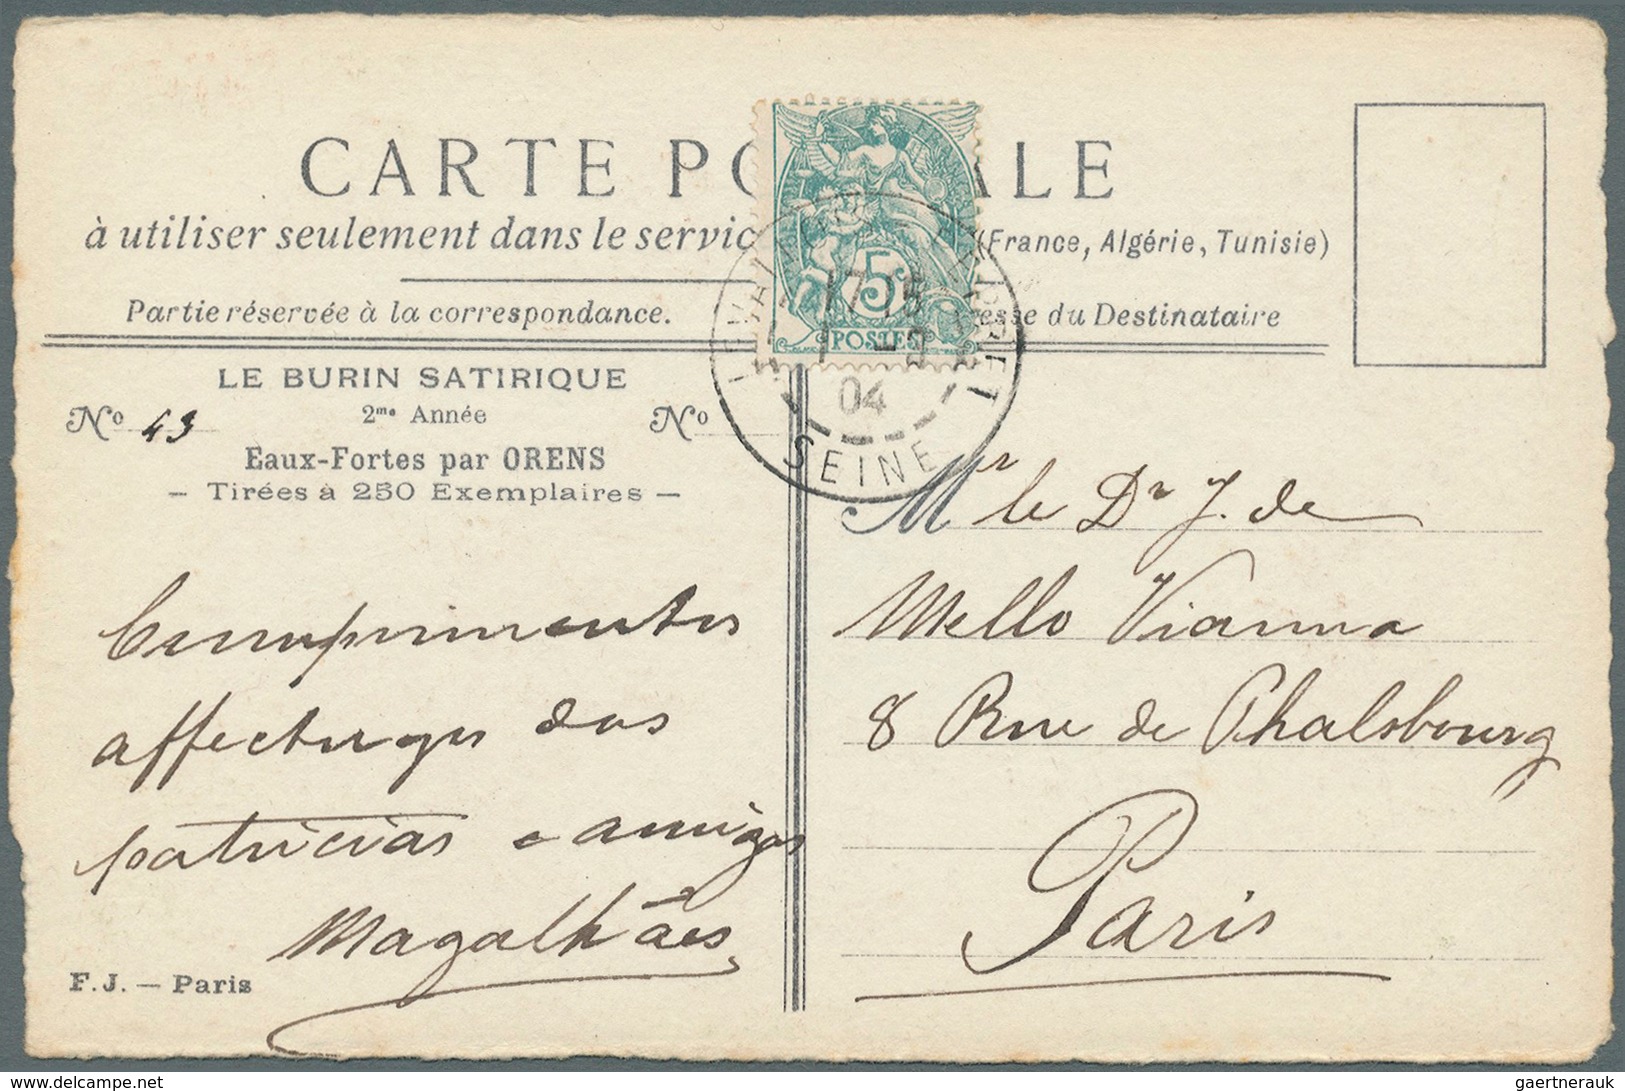 CARTE PO ALE
à utiliser seulement dans le servic (France, Algérie, Tunisie)
Partie réservée à la correspondance. esse du Destinataire
5
POSTES
LEVALLOIS-PERRET
04
SEINE
LE BURIN SATIRIQUE
2me Année
No 43 No
Eaux-Fortes par ORENS
— Tirées à 250 Exemplaires —
Cumprimentos
affectuosos dos
patricios e amigos
Magalhães
F. J. — Paris
Mr le Dr J. de
Mello Vianna
8 Rue de Phalsbourg
Paris
delcampe.net
gaertnerauk